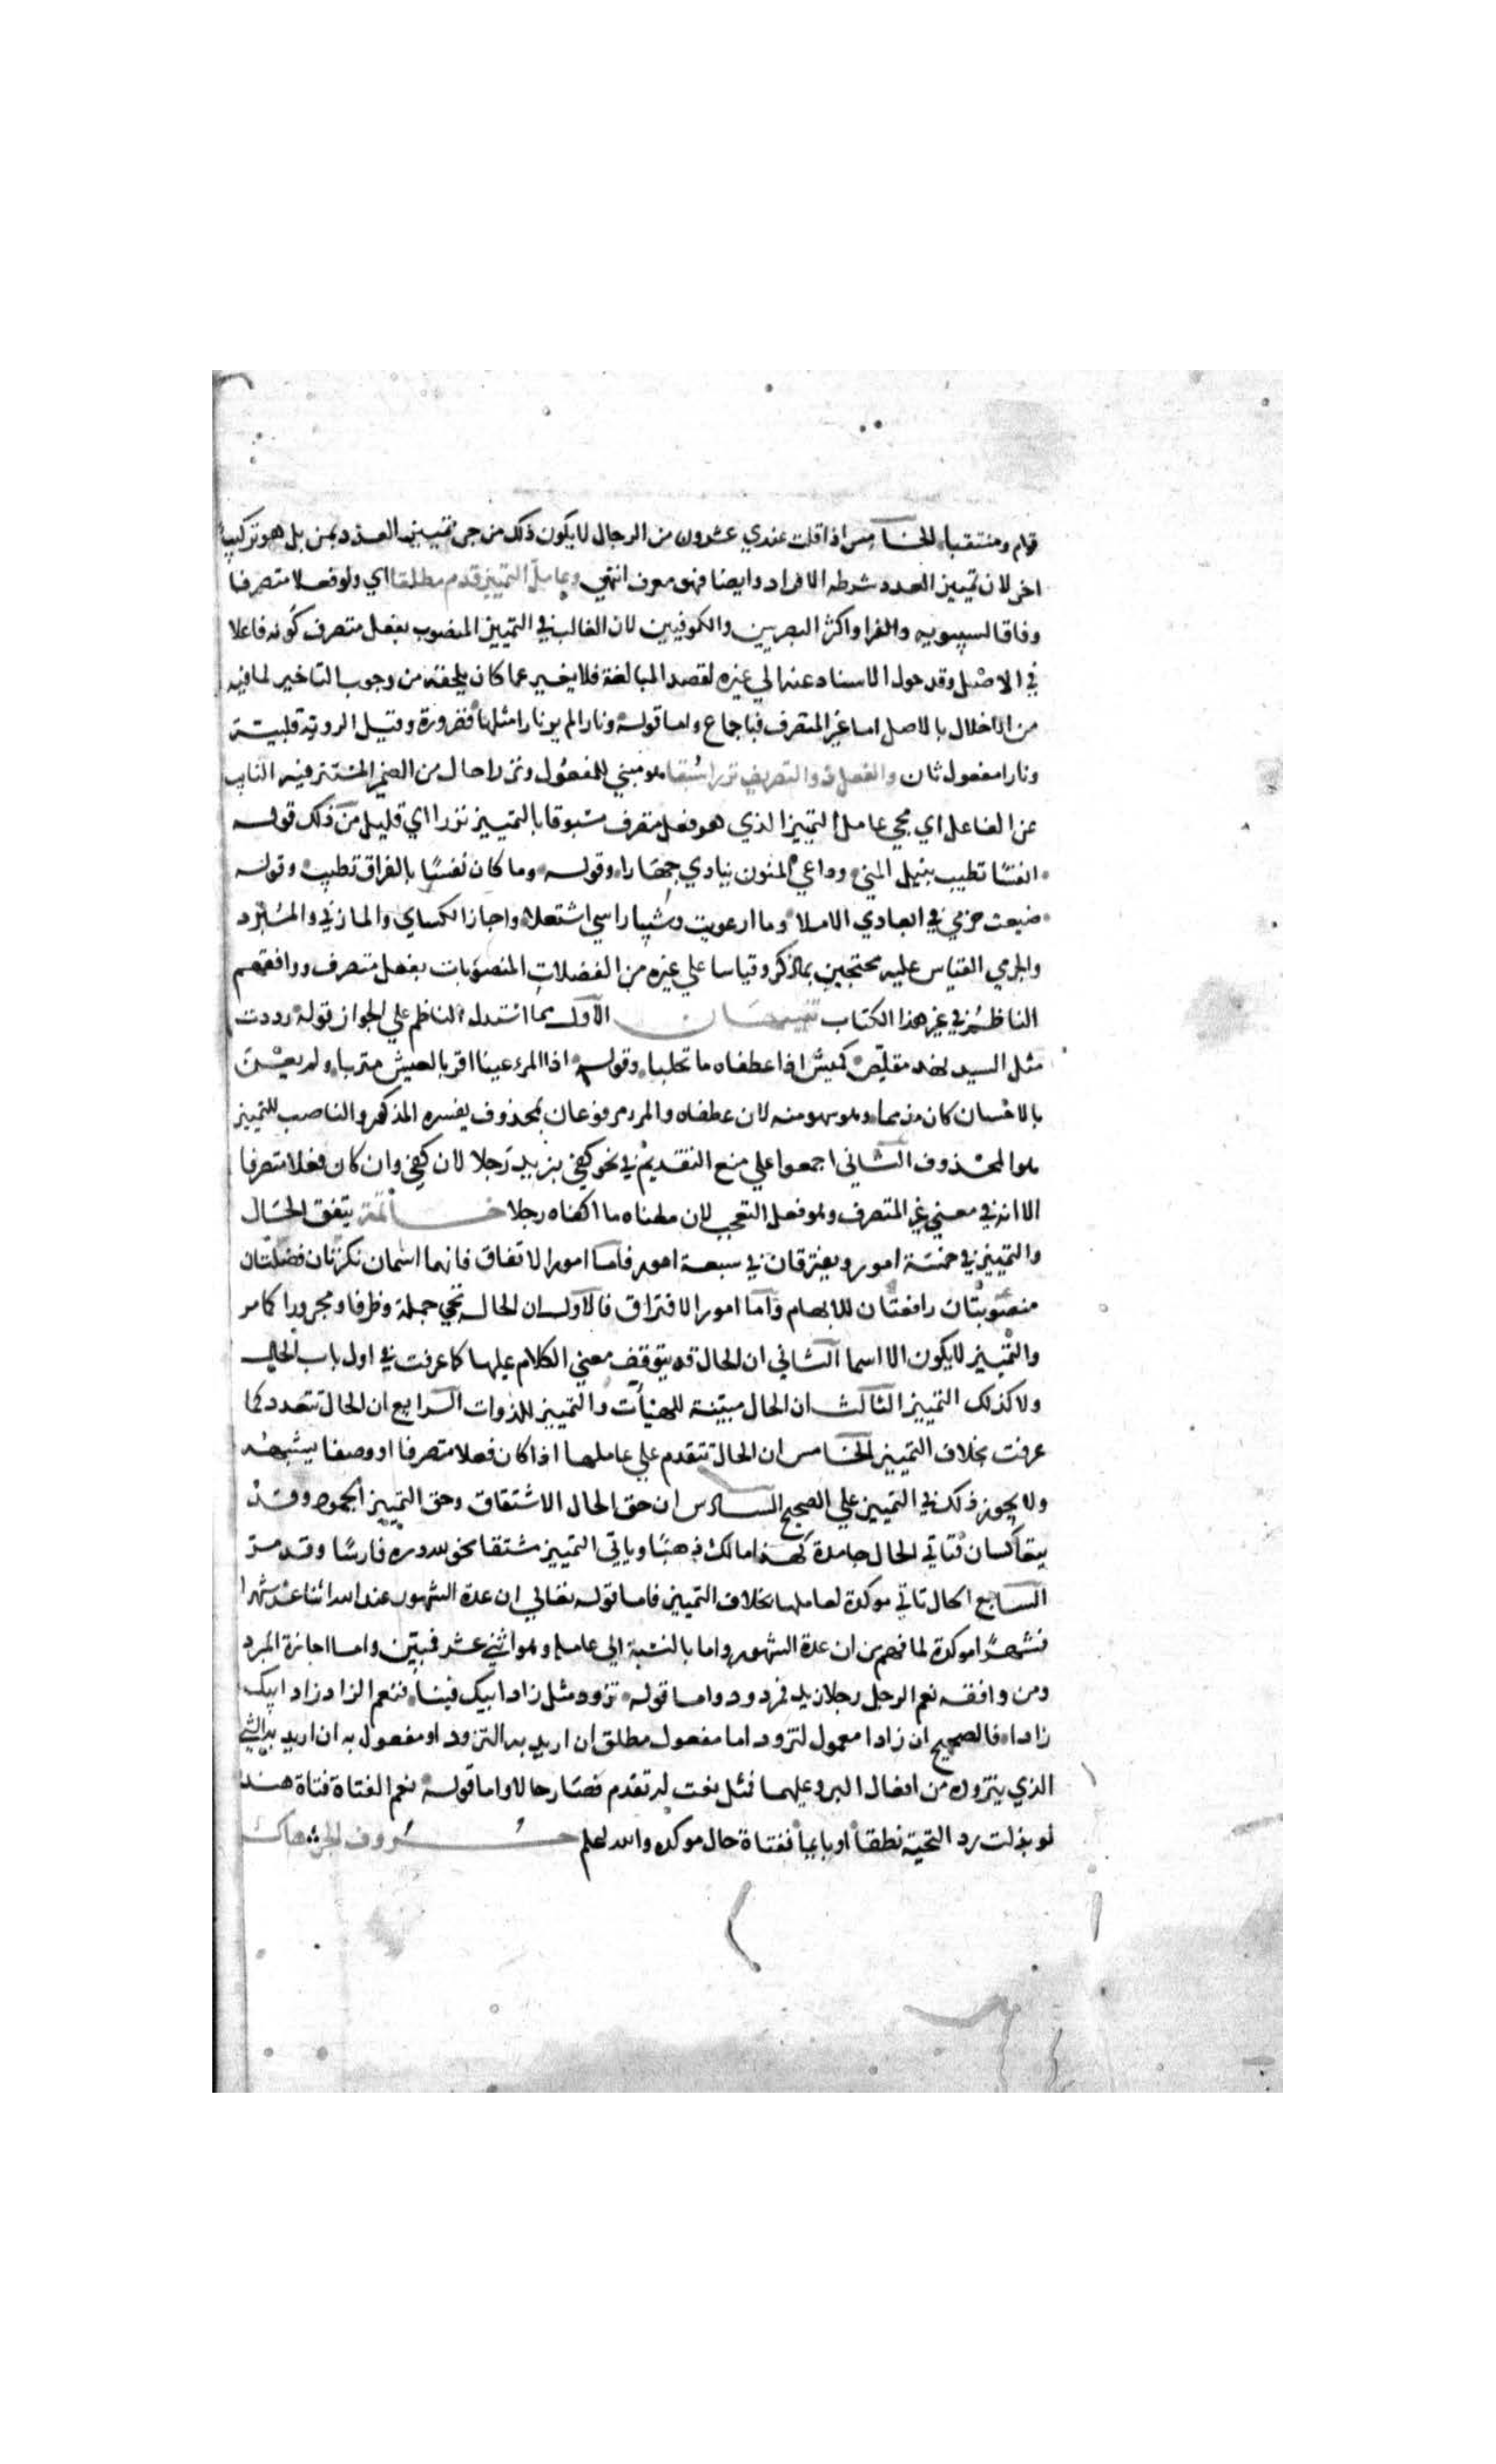 قوام ومنتقبا الخامس اذا قلت عندي عشرون من الرجال لا يكون ذلك من جر تمييز العدد بمن بل هو تركيب
اخر لان تمييز العدد شرطه الافراد وايضا فهو معرف انتهي وعامل التمييز قدم مطلقا اي ولو فعلا متصرفا
وفاقا لسيبويه والفرا واكثر البصريين والكوفيين لان الغالب في التمييز المنصوب بفعل متصرف كونه فاعلا
في الاصل وقد حول الاسناد عنه الي غيره لقصد المبالغة فلا يغير عما كان يلحقه من وجوب التاخير لما فيه
من الاخلال بالاصل اما غير المتصرف فباجماع واما قوله ونارا لم ير نارا مثلها فضرورة وقيل الروية قلبية
ونارا مفعول ثان والفعل ذو التصريف نزرا سبقا هو مبني للمفعول ونزرا حال من الضمير المستتر فيه النايب
عن الفاعل اي مجي عامل التمييز الذي هو فعل متصرف مسبوقا بالتمييز نزرا اي قليل من ذلك قوله
انفسا تطيب بنيل المني وداعي المنون ينادي جهارا وقوله وما كان نفسا بالفراق تطيب وقوله
ضيعت حزمي في ابعادي الاملا وما ارعويت وشيبا راسي اشتعلا واجاز الكساي والمازني والمبرد
والجرمي القياس عليه محتجين بما ذكر وقياسا علي غيره من الفضلات المنصوبات بفعل متصرف ووافقهم
الناظم في غير هذا الكتاب تنبيهان الاول مما استدل الناظم علي الجواز قوله رددت
مثل السيد نهد مقلص كميش اذا عطفاه ماء تحلبا وقوله اذا المرء عينا اقر بالعيش مثريا ولم يعن
بالاحسان كان مذمما وهو سهو منه لان عطفاه والمرء مرفوعان بمحذوف يفسره المذكور والناصب للتمييز
هو المحذوف الثاني اجمعوا علي منع التقديم في نحو كفي بزيد رجلا لان كفي وان كان فعلا متصرفا
الا انه في معني غير المتصرف وهو فعل التعجب لان معناه ما اكفاه رجلا خاتمة يتفق الحال
والتمييز في خمسة امور ويفترقان في سبعة امور فاما امور الاتفاق فانهما اسمان نكرتان فضلتان
منصوبتان رافعتان للابهام واما امور الافتراق فالاول ان الحال تجي جملة وظرفا ومجرورا كما مر
والتمييز لا يكون الا اسما الثاني ان الحال قد يتوقف معني الكلام عليها كما عرفت في اول باب الحال
ولا كذلك التمييز الثالث ان الحال مبينة للهيات والتمييز للذوات الرابع ان الحال تتعدد كما
عرفت بخلاف التمييز الخامس ان الحال تتقدم علي عاملها اذا كان فعلا متصرفا او وصفا يشبهه
ولا يجوز ذلك في التمييز علي الصحيح السادس ان حق الحال الاشتقاق وحق التمييز الجمود وقد
يتعاكسان فتاتي الحال جامدة كهذا مالك ذهبا وياتي التمييز مشتقا نحو لله دره فارسا وقد مر
السابع الحال تاتي موكدة لعاملها بخلاف التمييز فاما قوله تعالي ان عدة الشهور عند الله اثنا عشر شهرا
فشهرا موكدة لما فهم من ان عدة الشهور واما بالنسبة الي عامله وهو اثني عشر فمبين واما اجازة المبرد
ومن وافقه نعم الرجل رجلا زيد فمردود واما قوله تزود مثل زاد ابيك فينا فنعم الزاد زاد ابيك
زادا فالصحيح ان زادا معمول لتزود اما مفعول مطلق ان اريد به التزود او مفعول به ان اريد به الشي
الذي يتزوده من افعال البر وعليهما فمثل نعت له تقدم فصار حالا واما قوله نعم الفتاة فتاة هند
لو بذلت رد التحية نطقا او بايماء ففتاة حال موكدة والله اعلم حروف الجر هاك